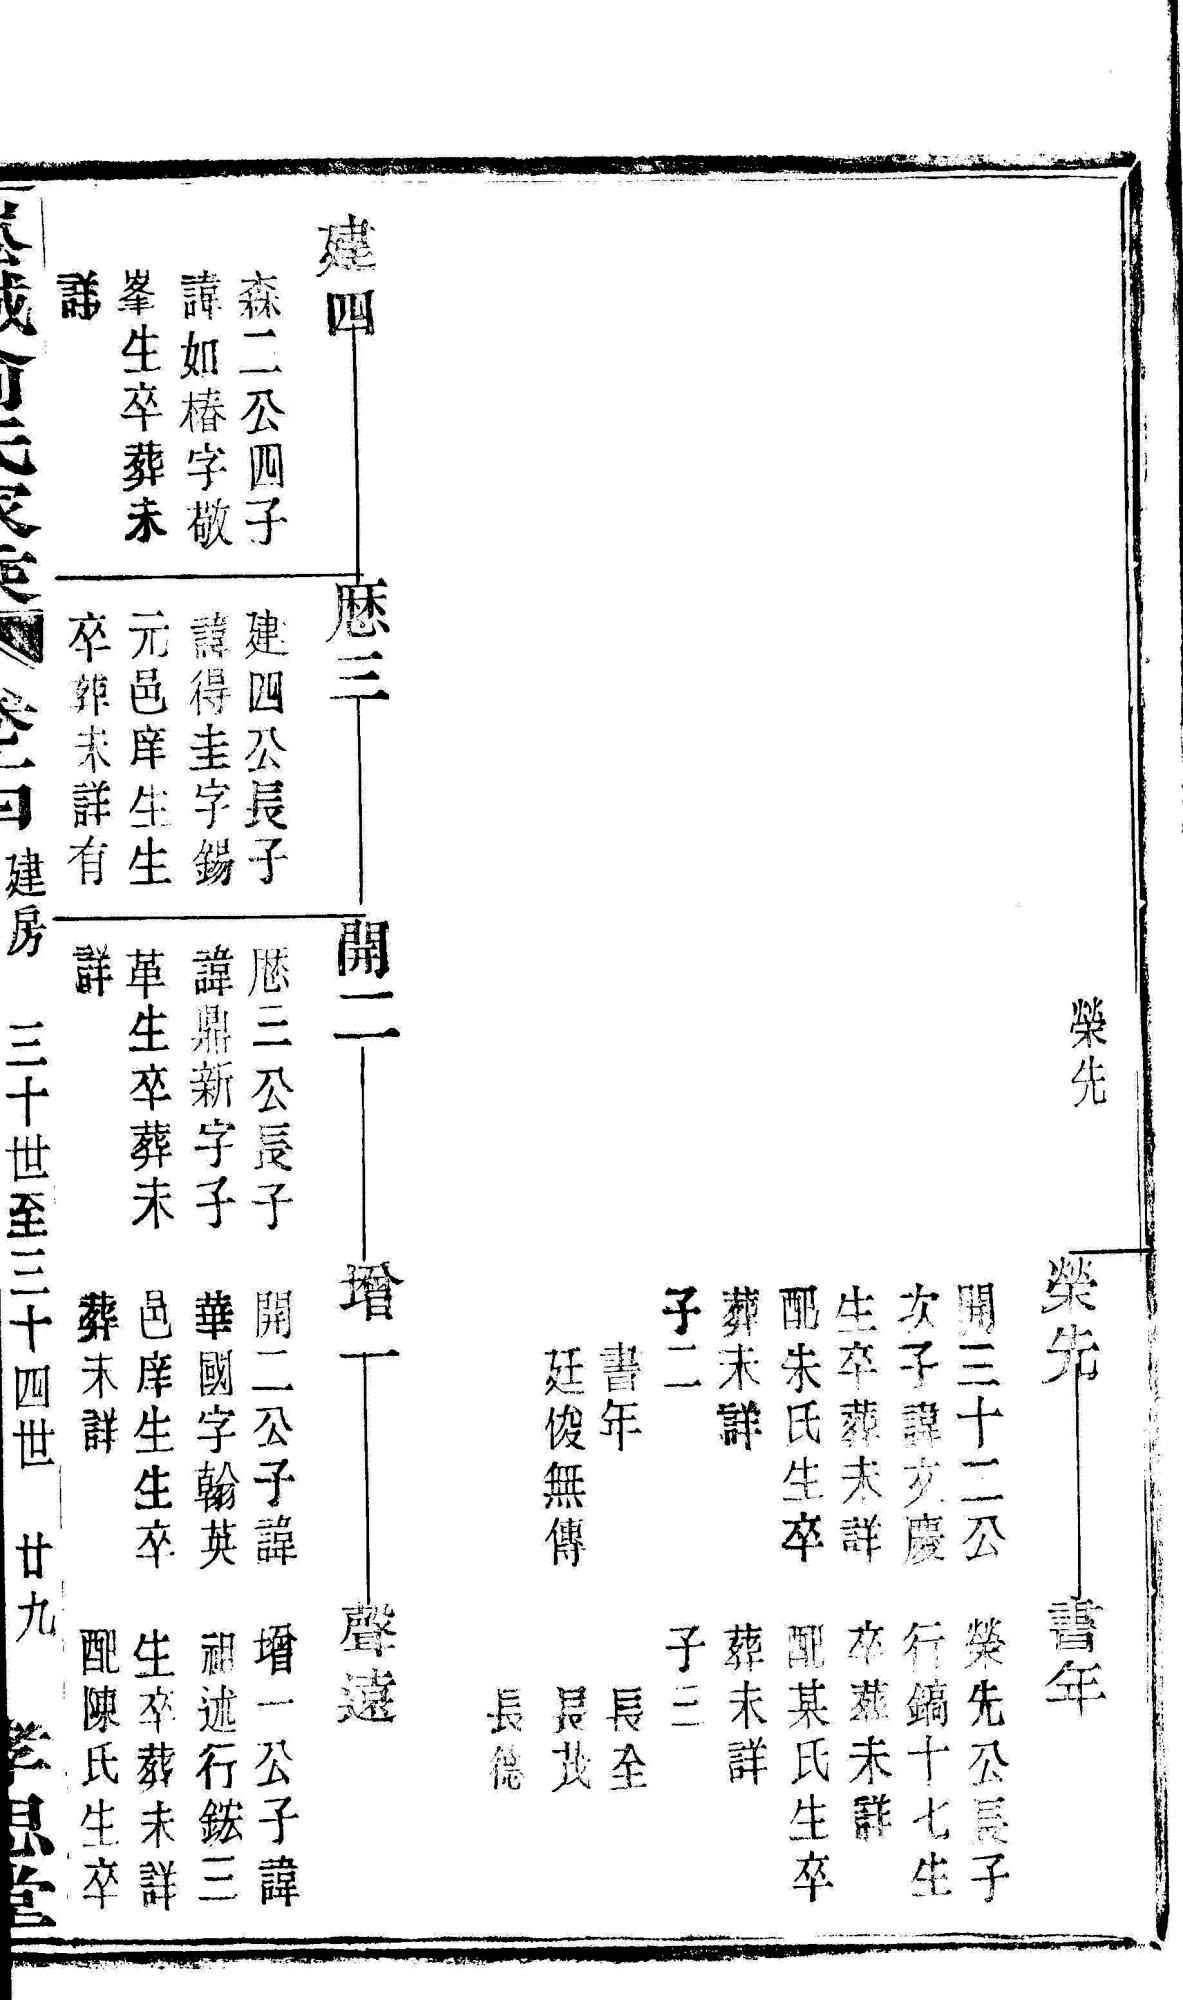 榮先
榮先
開三十二公
次子諱文慶
生卒葬未詳
配朱氏生卒
葬未詳
子二
書年
廷俊無傳
書年
榮先公長子
行鎬十七生
卒葬未詳
配某氏生卒
葬未詳
子三
長全
長茂
長德
建四
森二公四子
諱如椿字敬
峯生卒葬未
詳
厯三
建四公長子
諱得圭字錫
元邑庠生生
卒葬未詳有
開二
厯三公長子
諱鼎新字子
革生卒葬未
詳
增一
開二公子諱
華國字翰英
邑庠生生卒
葬未詳
聲遠
增一公子諱
祖述行鋐三
生卒葬未詳
配陳氏生卒
氏家乘
建房
三十世至三十四世
廿九
孝思堂